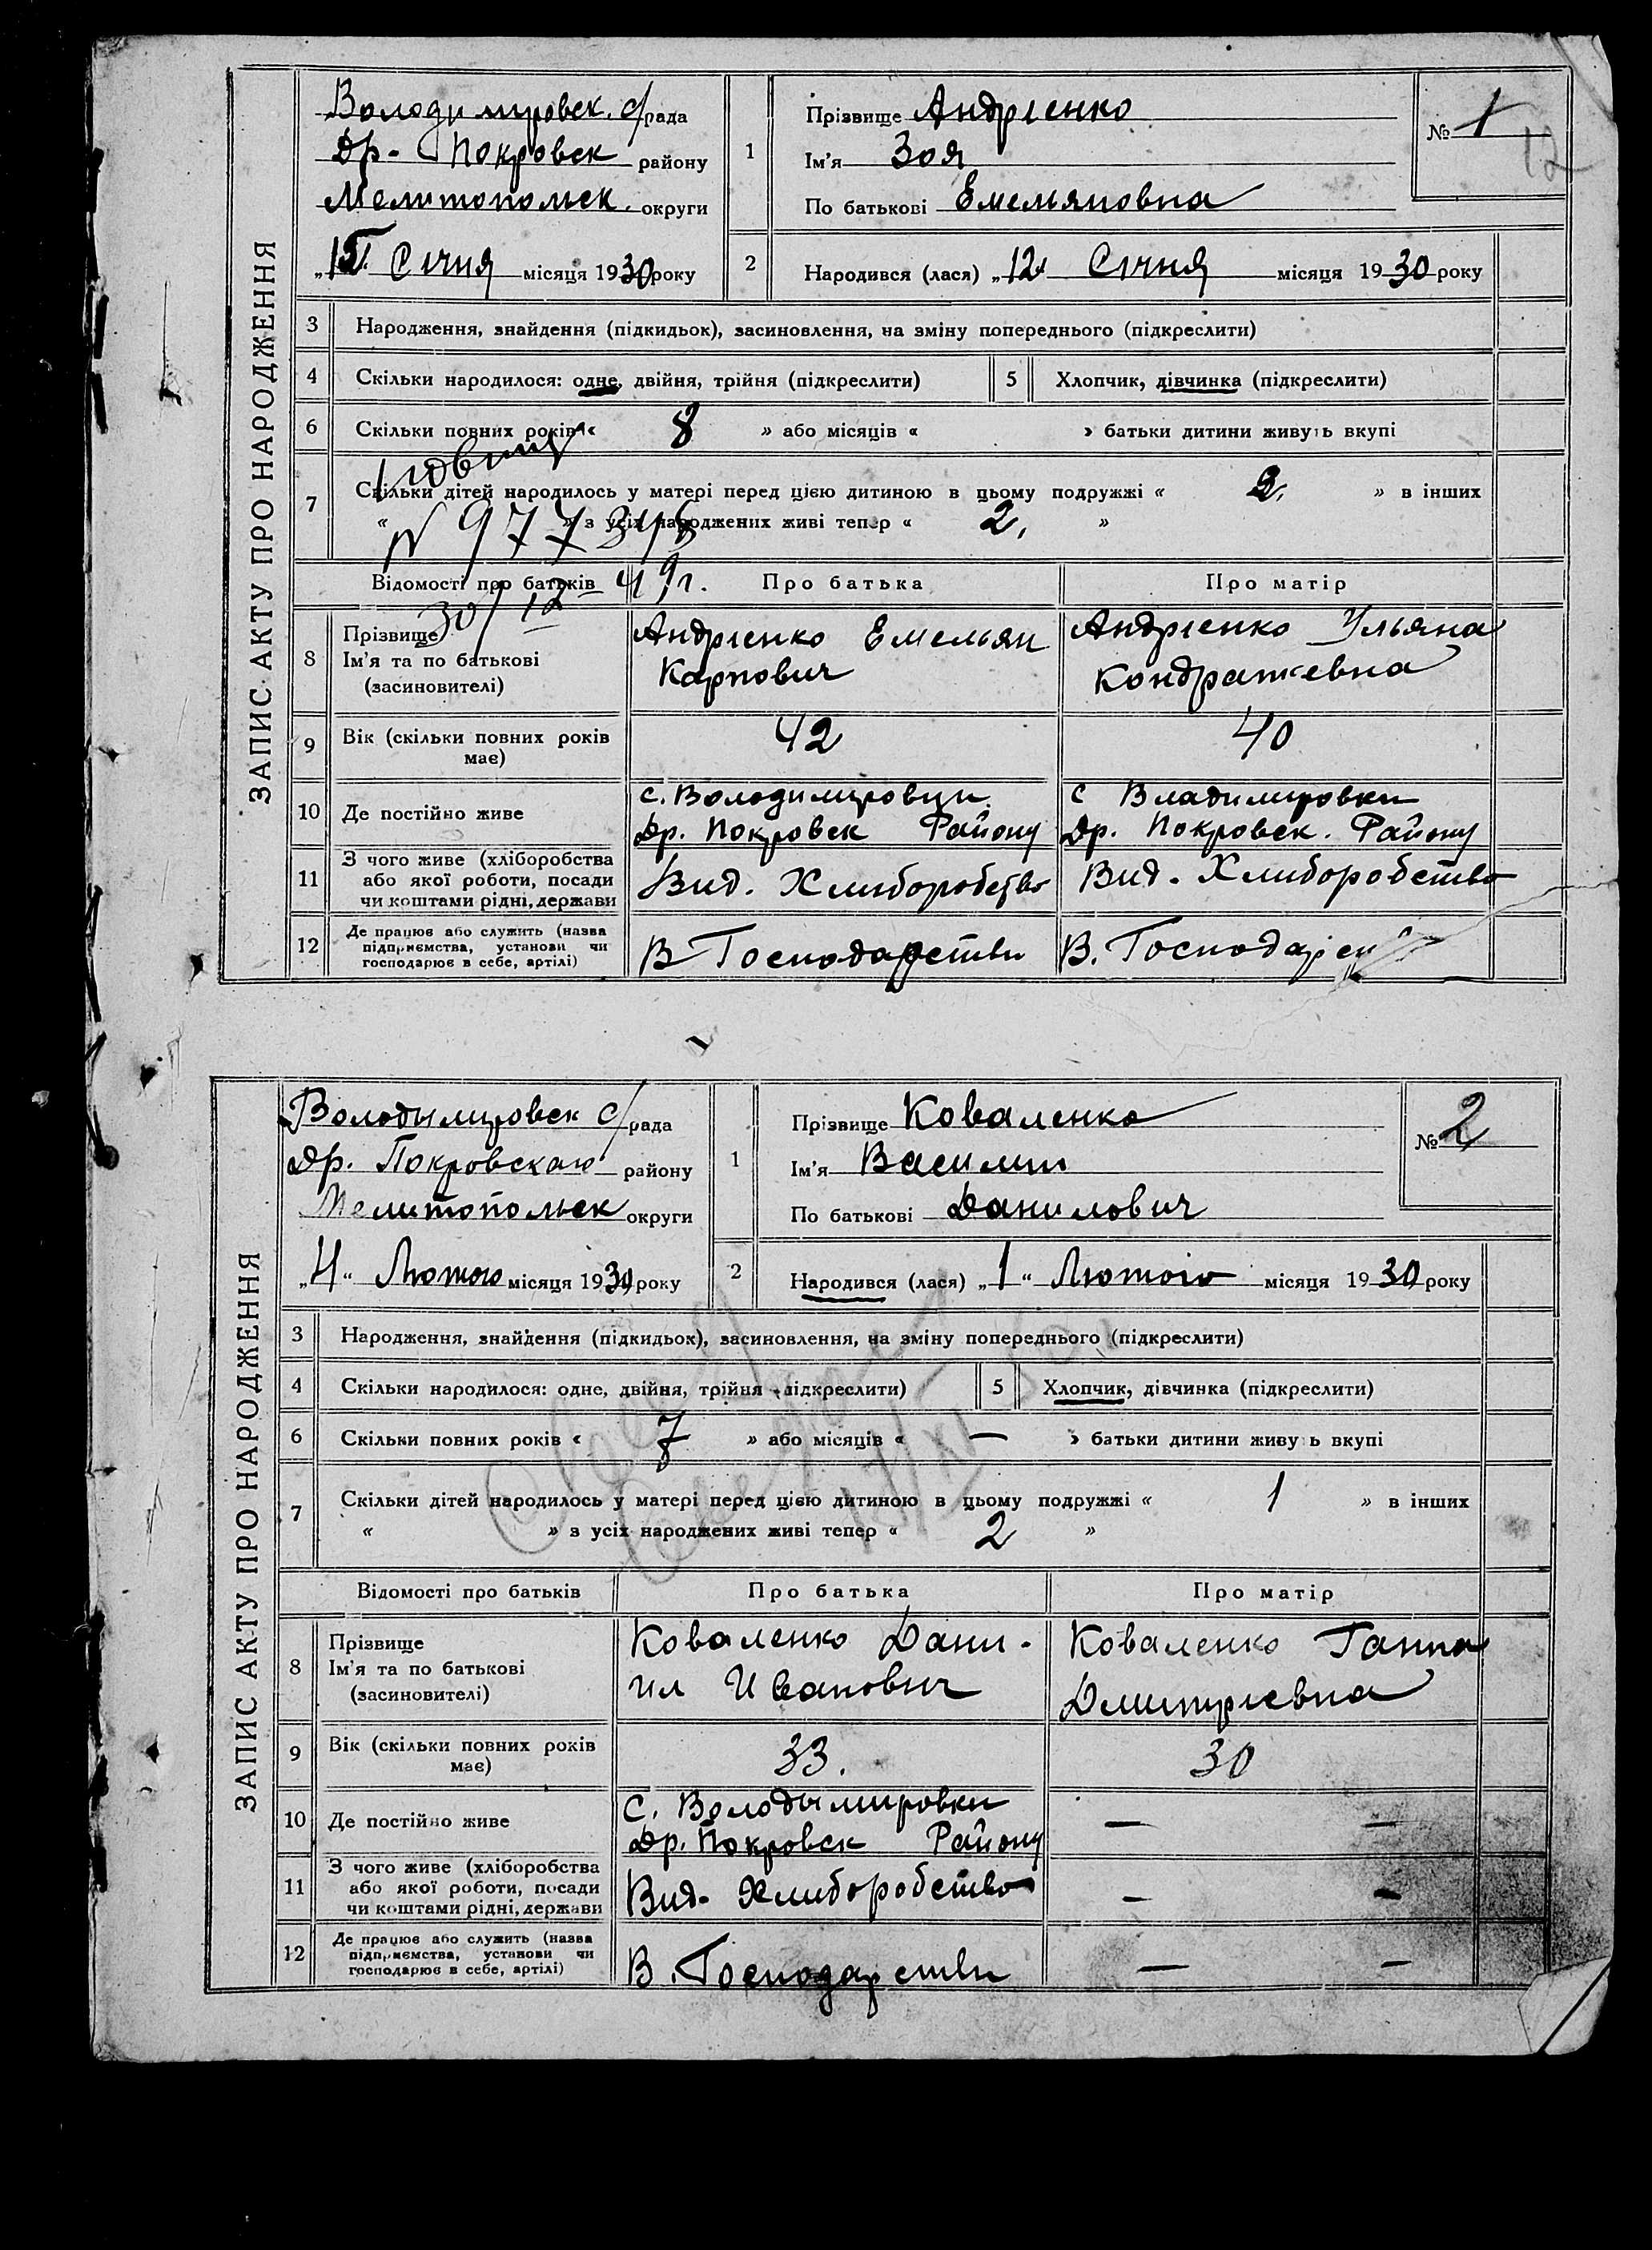 ЗАПИС АКТУ ПРО НАРОДЖЕННЯ
Володимировск. с/рада
Др-Покровск району
Мелитопольск. округи
Січня місяця 1930 року
1 Прізвище Андрієнко
Ім'я Зоя
По батькові Емельяновна
№ 1
12
2 Народився (лася) „12" Січня місяця 1930 року
3 Народження, знайдення (підкидьок), засиновлення, на зміну попереднього (підкреслити)
4 Скільки народилося: одне, двійня, трійня (підкреслити)
5 Хлопчик, дівчинка (підкреслити)
6 Скільки повних років « 8 » або місяців « » батьки дитини живуть вкупі
7 Скільки дітей народилось у матері перед цією дитиною в цьому подружжі « 2. » в інших
« » з усіх народжених живі тепер « 2, »
30/12 49 г.
Відомості про батьків Про батька Про матір
8 Прізвище
Ім'я та по батькові
(засиновителі)
Андрієнко Емельян
Карпович
Андрієнко Ульяна
Кондратевна
9 Вік (скільки повних років
має)
42
40
10 Де постійно живе
с. Володимировци
Др. Покровск Району
с Владимировки
Др. Покровск. Району
11 З чого живе (хліборобства
або якої роботи, посади
чи коштами рідні, держави
Вид. Хлиборобство
Вид. Хлиборобство
12 Де працює або служить (назва
підприємства, установи чи
господарює в себе, артілі)
В Господарстви
В. Господарс
ЗАПИС АКТУ ПРО НАРОДЖЕННЯ
Володымировск с/рада
Др. Покровскаго району
Мелитопольск округи
„4" Лютого місяця 1930 року
1 Прізвище Коваленко
Ім'я Василий
По батькові Данилович
№ 2
2 Народився (лася) „1" Лютого місяця 1930 року
3 Народження, знайдення (підкидьок), засиновлення, на зміну попереднього (підкреслити)
4 Скільки народилося: одне, двійня, трійня (підкреслити)
5 Хлопчик, дівчинка (підкреслити)
6 Скільки повних років « 7 » або місяців « — » батьки дитини живуть вкупі
7 Скільки дітей народилось у матері перед цією дитиною в цьому подружжі « 1 » в інших
« » з усіх народжених живі тепер « 2 »
Відомості про батьків Про батька Про матір
8 Прізвище
Ім'я та по батькові
(засиновителі)
Коваленко Дани-
ил Иванович
Коваленко Ганна
Дмитриевна
9 Вік (скільки повних років
має)
33.
30
10 Де постійно живе
С. Володымировки
Др. Покровск Району
— —
11 З чого живе (хліборобства
або якої роботи, посади
чи коштами рідні, держави
Вид. Хлиборобство
— —
12 Де працює або служить (назва
підприємства, установи чи
господарює в себе, артілі)
В. Господарстви
— —